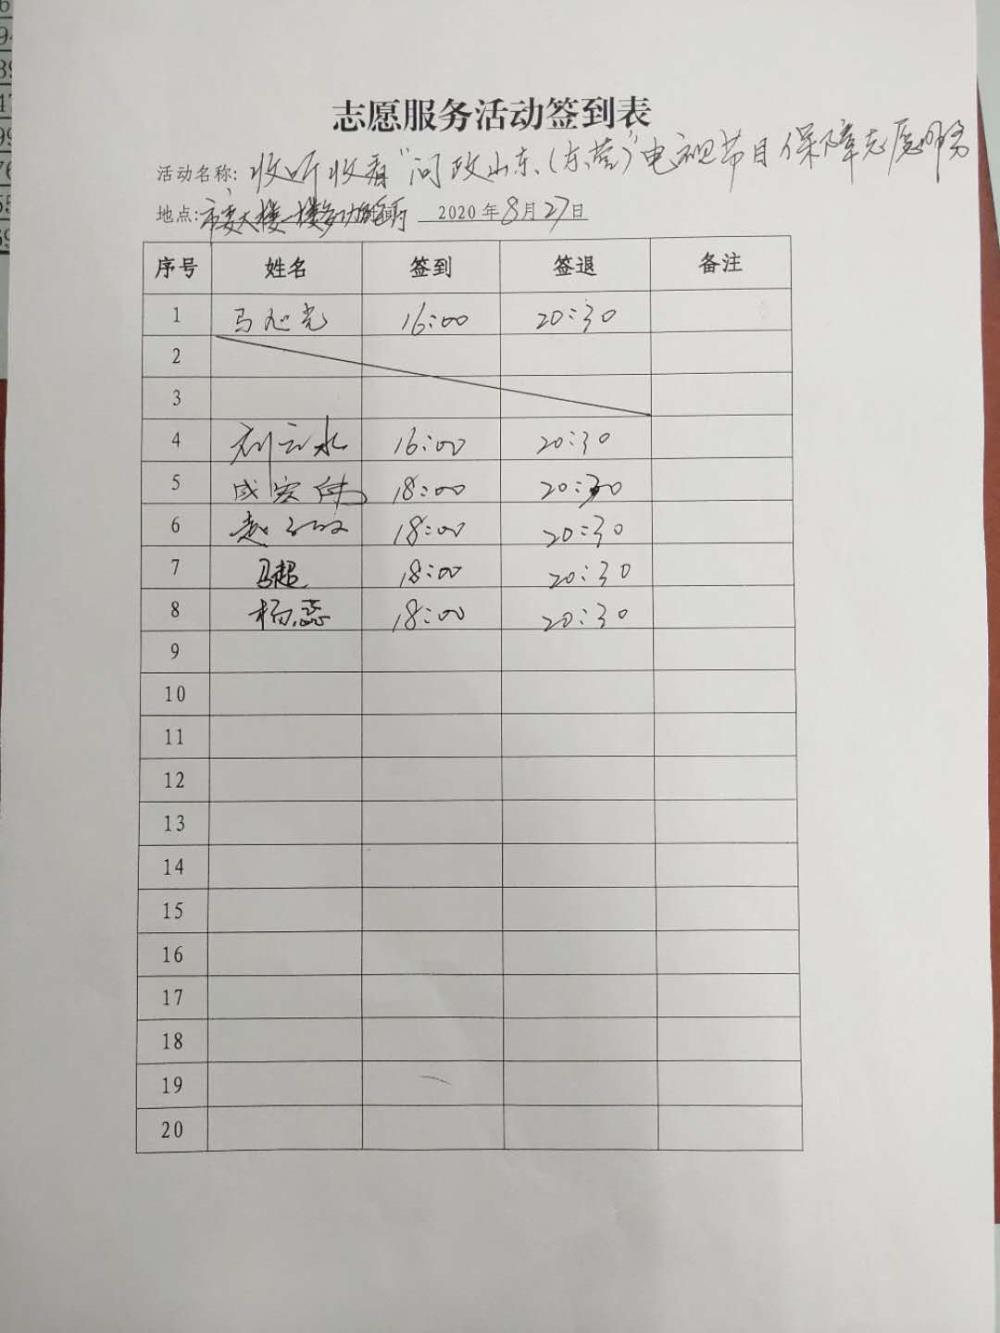 志愿服务活动签到表
活动名称: 收听收看"问政山东、(东营)"电视节目保障志愿服务
地点: 市委大楼一楼多功能厅 2020年8月27日
序号 姓名 签到 签退 备注
1 马旭光 16:00 20:30
2
3
4 刘云水 16:00 20:30
5 成宏伟 18:00 20:30
6 18:00 20:30
7 马超 18:00 20:30
8 杨蕊 18:00 20:30
9
10
11
12
13
14
15
16
17
18
19
20